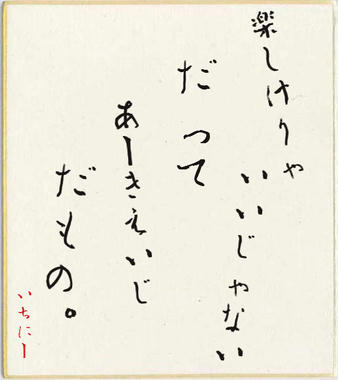 楽しけりゃ
いいじゃない
だって
あーきえいじ
だもの。
いちにー